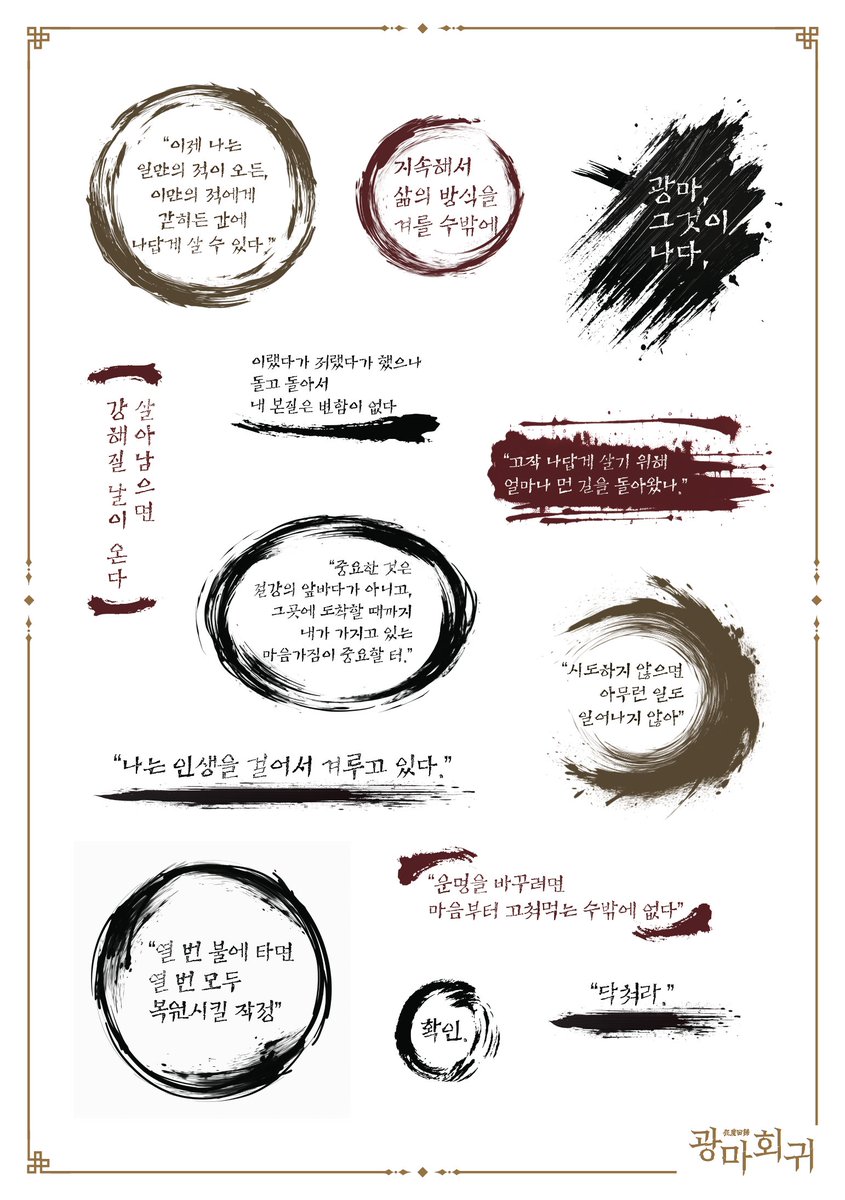 “이제 나는
일만의 적이 오든,
이만의 적에게
갇히든 간에
나답게 살 수 있다.”
지속해서
삶의 방식을
겨룰 수밖에
광마,
그것이
나다.
이랬다가 저랬다가 했으나
돌고 돌아서
내 본질은 변함이 없다
살아남으면
강해질 날이 온다
“고작 나답게 살기 위해
얼마나 먼 길을 돌아왔나.”
“중요한 것은
절강의 앞바다가 아니고,
그곳에 도착할 때까지
내가 가지고 있는
마음가짐이 중요할 터.”
“시도하지 않으면
아무런 일도
일어나지 않아”
“나는 인생을 걸어서 겨루고 있다.”
“운명을 바꾸려면
마음부터 고쳐먹는 수밖에 없다”
“열 번 불에 타면
열 번 모두
복원시킬 작정”
확인.
“닥쳐라.”
狂魔回歸
광마회귀